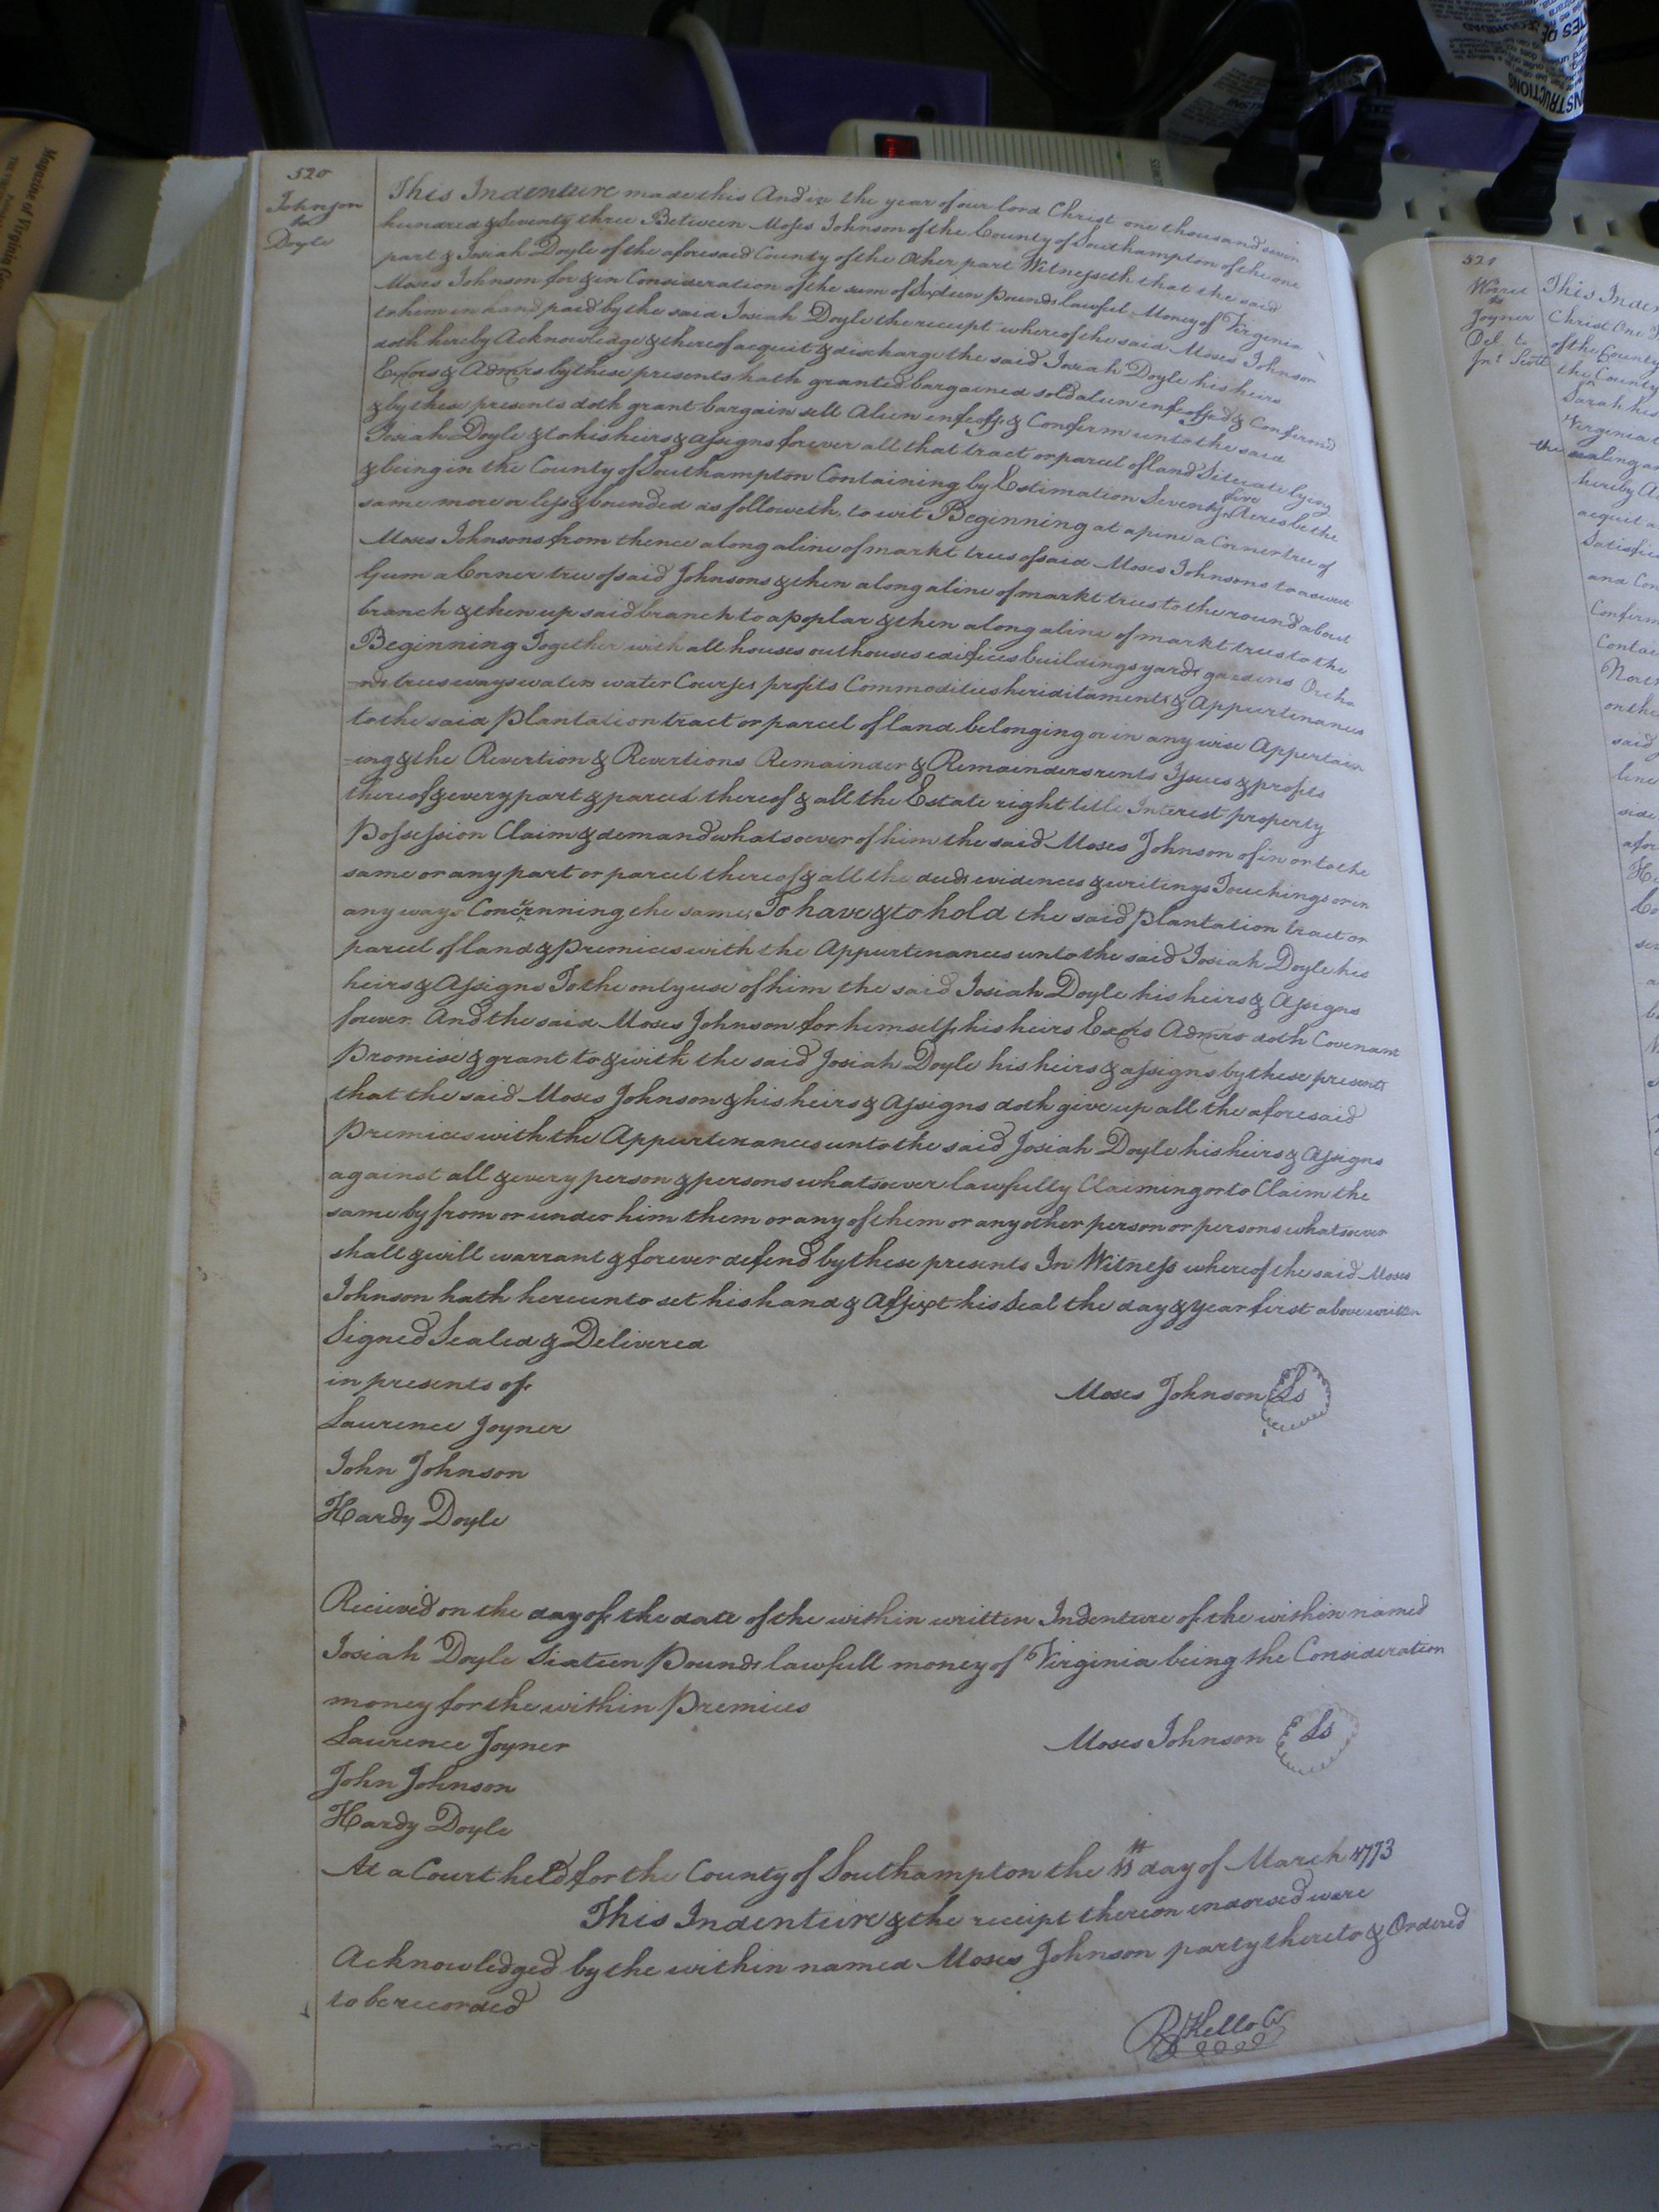 520
Johnson
to
Doyle
This Indenture made this And in the year of our lord Christ one thousand seven
hundred & Seventy three Between Moses Johnson of the County of Southampton of the one
part & Josiah Doyle of the aforesaid County of the Other part Witnesseth that the said
Moses Johnson for & in Consideration of the sum of Sixteen pounds lawful Money of Virginia
to him in hand paid by the said Josiah Doyle the receipt whereof he said Moses Johnson
doth hereby Acknowledge & thereof acquit & discharge the said Josiah Doyle his heirs
Exors & Admrs by these presents hath granted bargained sold alien enfeoffed & Confirmd
& by these presents doth grant bargain sell Alien enfeoff & Confirm unto the said
Josiah Doyle & to his heirs & assigns forever all that tract or parcel of land Situate lying
& being in the County of Southampton Containing by Estimation Seventy five Acres be the
same more or less & bounded as followeth. to wit Beginning at a pine a Corner tree of
Moses Johnsons from thence along a line of markt trees of said Moses Johnsons to a sweet
Gum a Corner tree of said Johnsons & then along a line of markt trees to the round about
branch & then up said branch to a poplar & then along a line of markt trees to the
Beginning Together with all houses outhouses edifices buildings yards gardens Orcha
-rds trees ways waters water Courses profits Commodities heriditaments & Appurtenances
to the said plantation tract or parcel of land belonging or in any wise Appertain
-ing & the Revertion & Revertions Remainder & Remainders rents Issues & profits
thereof & every part & parcel thereof & all the Estate right title Interest property
Possession Claim & demand whatsoever of him the said Moses Johnson of in or to the
same or any part or parcel thereof & all the deeds evidences & writings Touchings or in
any ways Concernning the same, To have & to hold the said plantation tract or
parcel of land & premices with the Appurtenances unto the said Josiah Doyle his
heirs & Assigns To the only use of him the said Josiah Doyle his heirs & Assigns
forever. And the said Moses Johnson for himself his heirs Exors Admrs doth Covenant
Promise & grant to & with the said Josiah Doyle his heirs & assigns by these presents
that the said Moses Johnson & his heirs & Assigns doth give up all the aforesaid
Premices with the Appurtenances unto the said Josiah Doyle his heirs & Assigns
against all & every person & persons whatsoever lawfully Claiming or to Claim the
same by from or under him them or any of them or any other person or persons whatsoever
shall & will warrant & forever defend by these presents In Witness whereof the said Moses
Johnson hath hereunto set his hand & Affixt his Seal the day & year first above written
Signed Sealed & Delivered
in presents of
Moses Johnson Ls
Laurence Joyner
John Johnson
Hardy Doyle
Recieved on the day of the date of the within written Indenture of the within named
Josiah Doyle Sixteen Pounds lawfull money of Virginia being the Consideration
money for the within Premices
Laurence Joyner
Moses Johnson Ls
John Johnson
Hardy Doyle
At a Court held for the County of Southampton the day of March 1773
This Indenture & the receipt thereon endorsed were
Acknowledged by the within named Moses Johnson party thereto & Ordered
to be recorded
R Kello Cr
521
Worrel
to
Joyner
Del. to
Jns Scott
This Inden
Christ One T
of the County
the County
Sarah his
Virginia t
the sealing an
hereby A
acquit a
Satisfie
and Con
Confirm
Contai
North
on the
said
line
side
afor
Magazine of Virginia Ge
INSTRUCTIONS